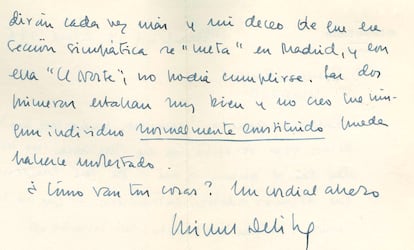 dirán cada vez más y mi deseo de que esa
sección simpática se "meta" en Madrid, y con
ella "El Norte", no podrá cumplirse. Las dos
primeras estaban muy bien y no creo que nin-
gún individuo normalmente constituido pueda
haberse molestado.
¿Cómo van tus cosas? Un cordial abrazo
Miguel Delibes